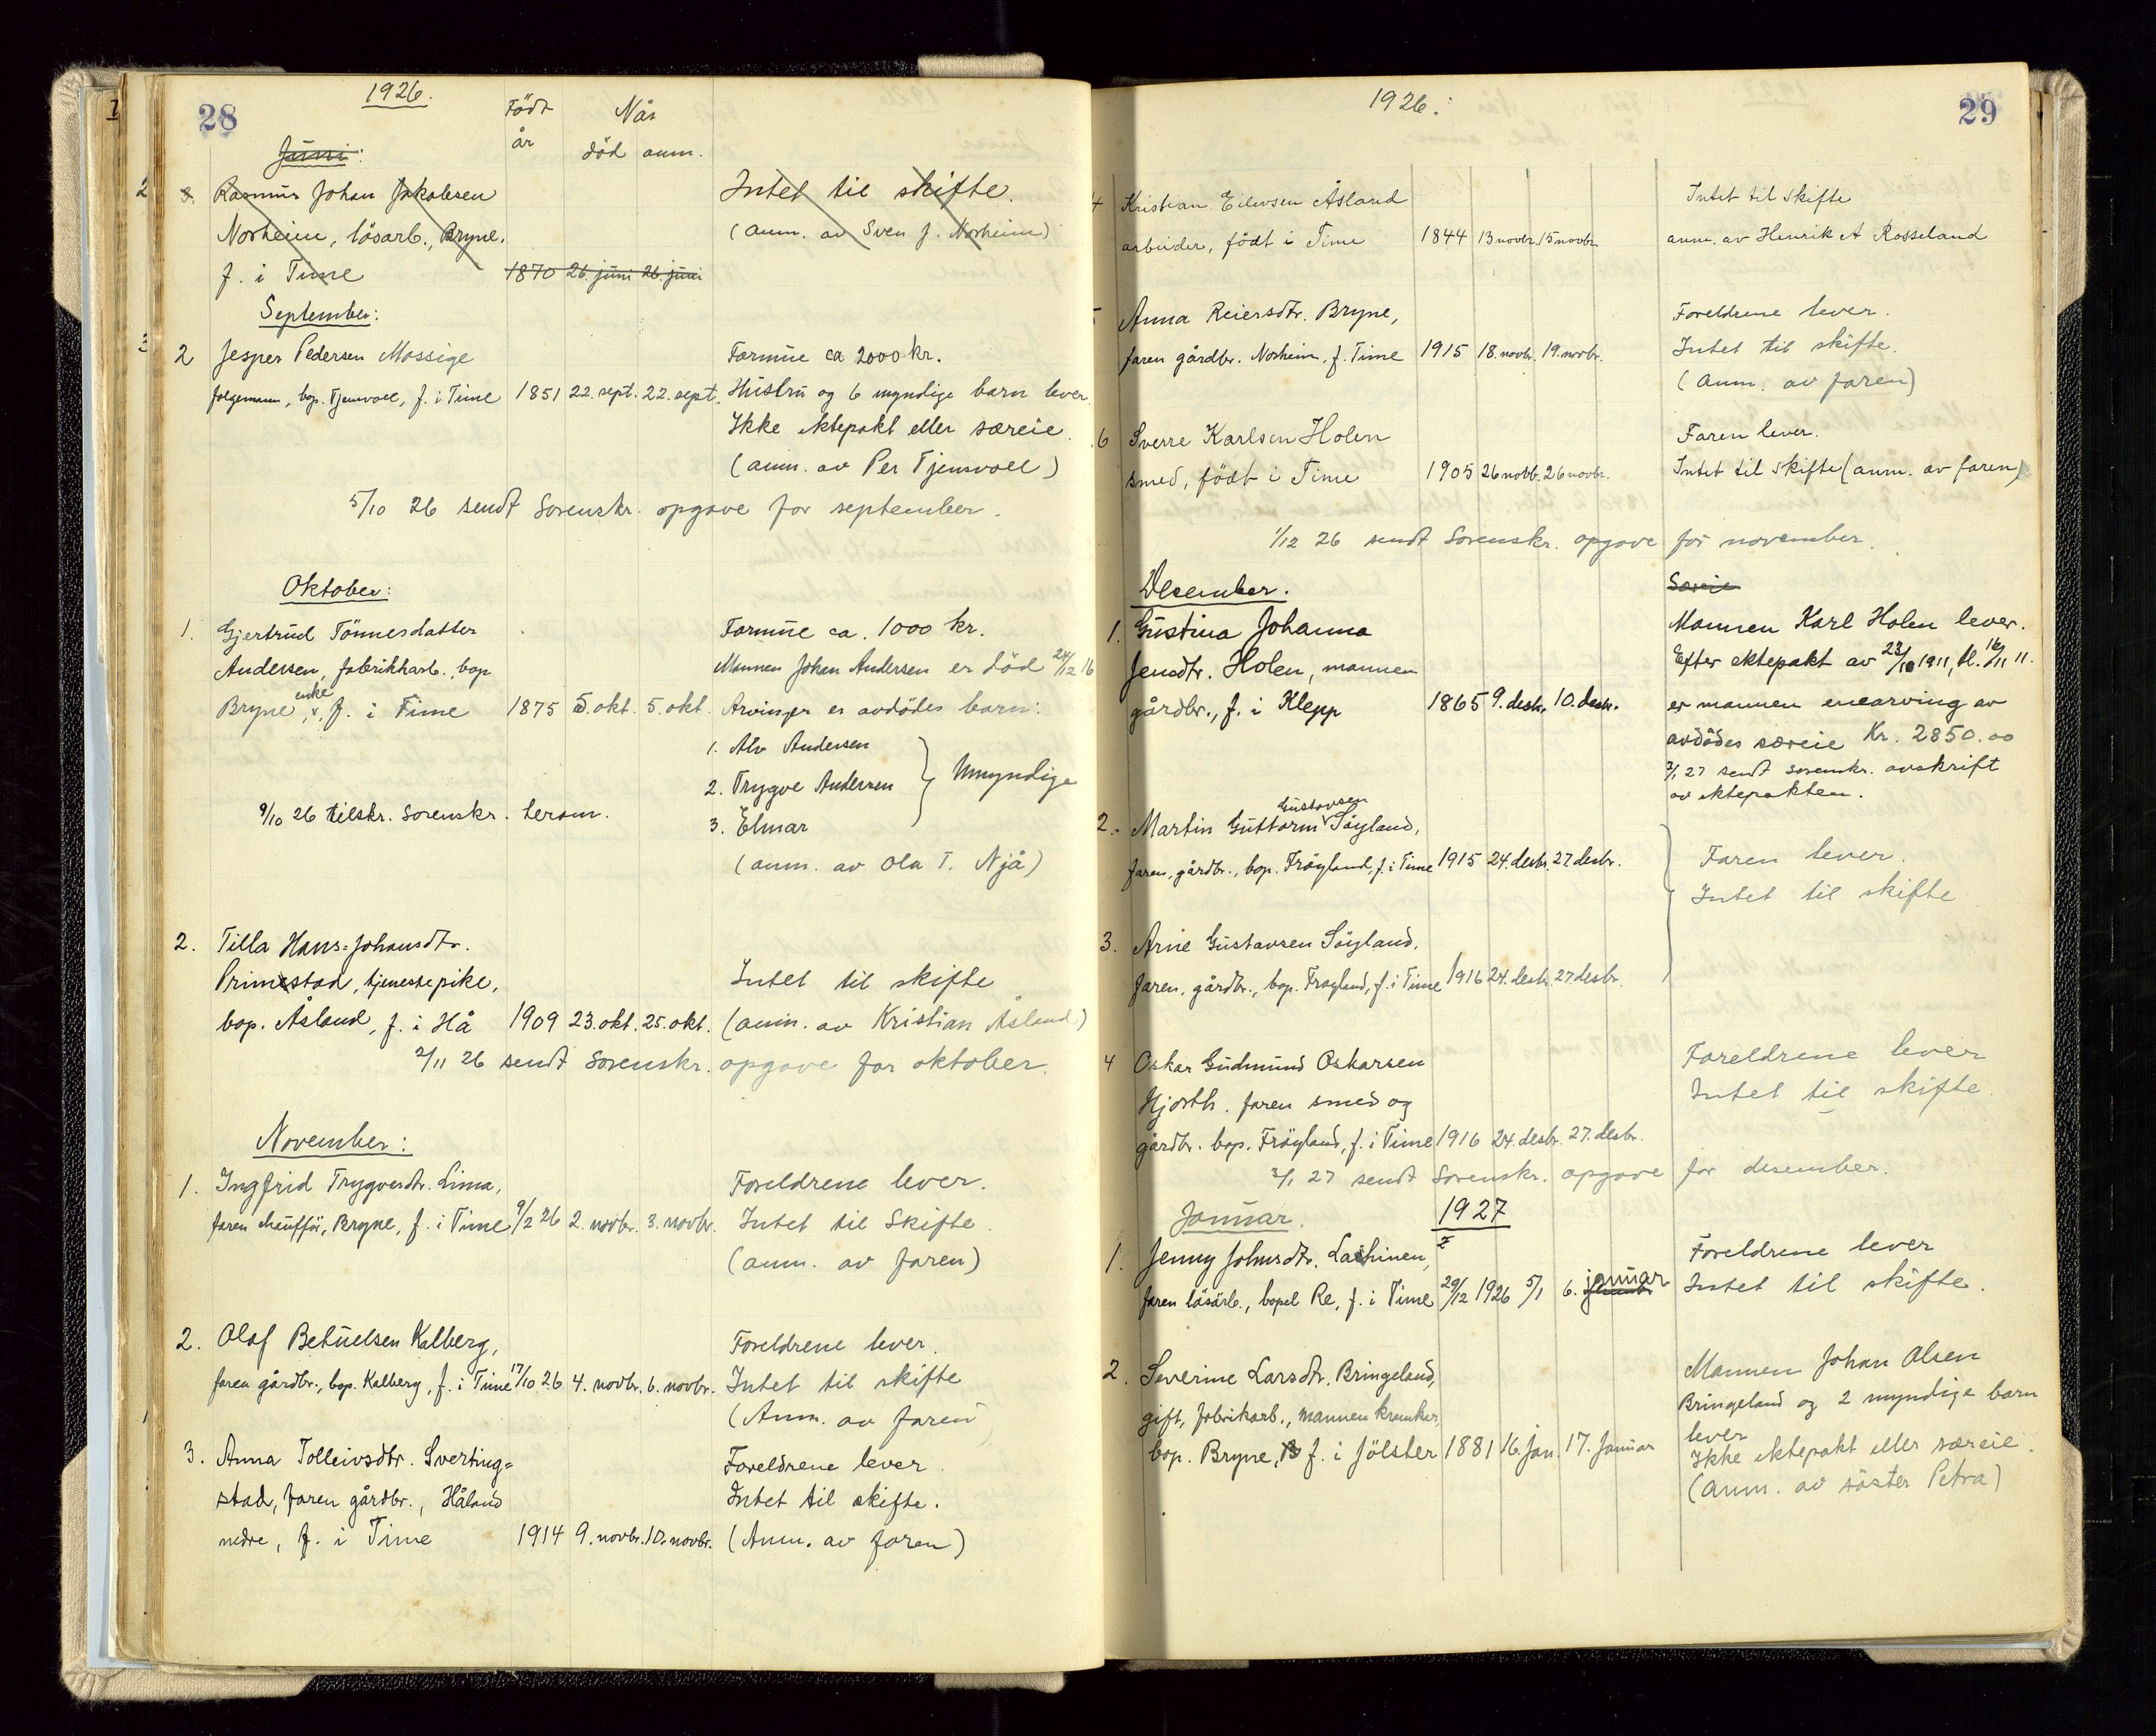 28
1926.
Født år
Når
død anm.
Juni:
3. Rasmus Johan Jakobsen
Norheim, løsarb., Bryne,
f. i Time 1870 26. juni 26. juni
Intet til skifte.
(anm. av Sven J. Norheim)
September:
2 Jesper Pedersen Mossige
folgemann, bop. Tjensvoll, f. i Time 1851 22. sept. 22. sept.
Formue ca 2000 kr.
Hustru og 6 myndige barn lever
Ikke ektepakt eller særeie.
(anm. av Per Tjensvoll)
5/10 26 sendt Sorenskr. opgave for september.
Oktober:
1. Gjertrud Tönnesdatter
Andersen, fabrikkarb., bop
Bryne, enke, f. i Time 1875 5. okt. 5. okt.
Formue ca. 1000 kr.
Mannen Johan Andersen er död 24/12 16
Arvinger er avdödes barn:
1. Alv Andersen
2. Trygve Andersen } Umyndige
3. Elmar
(anm. av Ola T. Njå)
9/10 26 tilskr. Sorenskr. herom.
2. Tilla Hans-Johansdtr.
Primestad, tjenestepike,
bop. Åsland, f. i Hå 1909 23. okt. 25. okt.
Intet til skifte
(anm. av Kristian Åsland)
2/11 26 sendt Sorenskr. opgave for oktober.
November:
1. Ingfrid Trygvesdtr. Lima,
faren chaufför, Bryne, f. i Time 9/2 26 2. novbr. 3. novbr.
Foreldrene lever.
Intet til Skifte.
(anm. av faren)
2. Olaf Betuelsen Kalberg,
faren gårdbr., bop. Kalberg, f. i Time 17/10 26 4. novbr. 6. novbr.
Foreldrene lever.
Intet til skifte
(Anm. av faren
3. Anna Tolleivsdtr. Sverting=
stad, faren gårdbr., Håland
nedre, f. i Time 1914 9. novbr. 10. novbr.
Foreldrene lever
Intet til skifte.
(Anm. av faren)
1926.
29
4 Kristian Eilevsen Åsland
arbeider, födt i Time 1844 13 novbr. 15 novbr.
Intet til skifte
anm. av Henrik A Rosseland
Anna Reiersdtr. Bryne,
faren gårdbr. Norheim, f. Time 1915 18. novbr. 19. novbr.
Foreldrene lever.
Intet til skifte.
(anm. av faren)
6 Sverre Karlsen Holen
smed, födt i Time 1905 26 novbr. 26 novbr.
Faren lever.
Intet til skifte (anm. av faren)
1/12 26 sendt Sorenskr. opgave for november.
Desember.
Særeie
1. Gustina Johanna
Jensdtr. Holen, mannen
gårdbr., f. i Klepp 1865 9. desbr. 10. desbr.
Mannen Karl Holen lever.
Efter ektepakt av 23/10 1911, tl. 16/11 11.
er mannen enearving av
avdödes særeie Kr. 2850.00
3/1 27 sendt sorenskr. avskrift
av ektepakten.
2. Martin Guttorm Gustavsen Söyland,
faren, gårdbr., bop. Fröyland, f. i Time 1915 24. desbr. 27. desbr.
Faren lever.
Intet til skifte
3. Arne Gustavsen Söyland,
faren, gårdbr., bop. Frøyland, f. i Time 1916 24. desbr. 27. desbr.
4 Oskar Gudmund Oskarsen
Hjorth. faren smed og
gårdbr. bop. Fröyland, f. i Time 1916 24. desbr. 27. desbr.
Foreldrene lever
Intet til skifte.
3/1 27 sendt Sorenskr. opgave for desember.
Januar. 1927
1. Jenny Johnsdtr.
faren lösarb., bopel Re, f. i Time 29/12 1926 5/1 6. januar
Foreldrene lever
Intet til skifte.
2. Severine Larsdtr. Bringeland,
gift, fabrikarb., mannen
bop. Bryne, f. i Jölster 1881 16. jan. 17. Januar
Mannen Johan Olsen
Bringeland og 2 myndige barn
lever
Ikke ektepakt eller særeie.
(anm. av söster Petra)